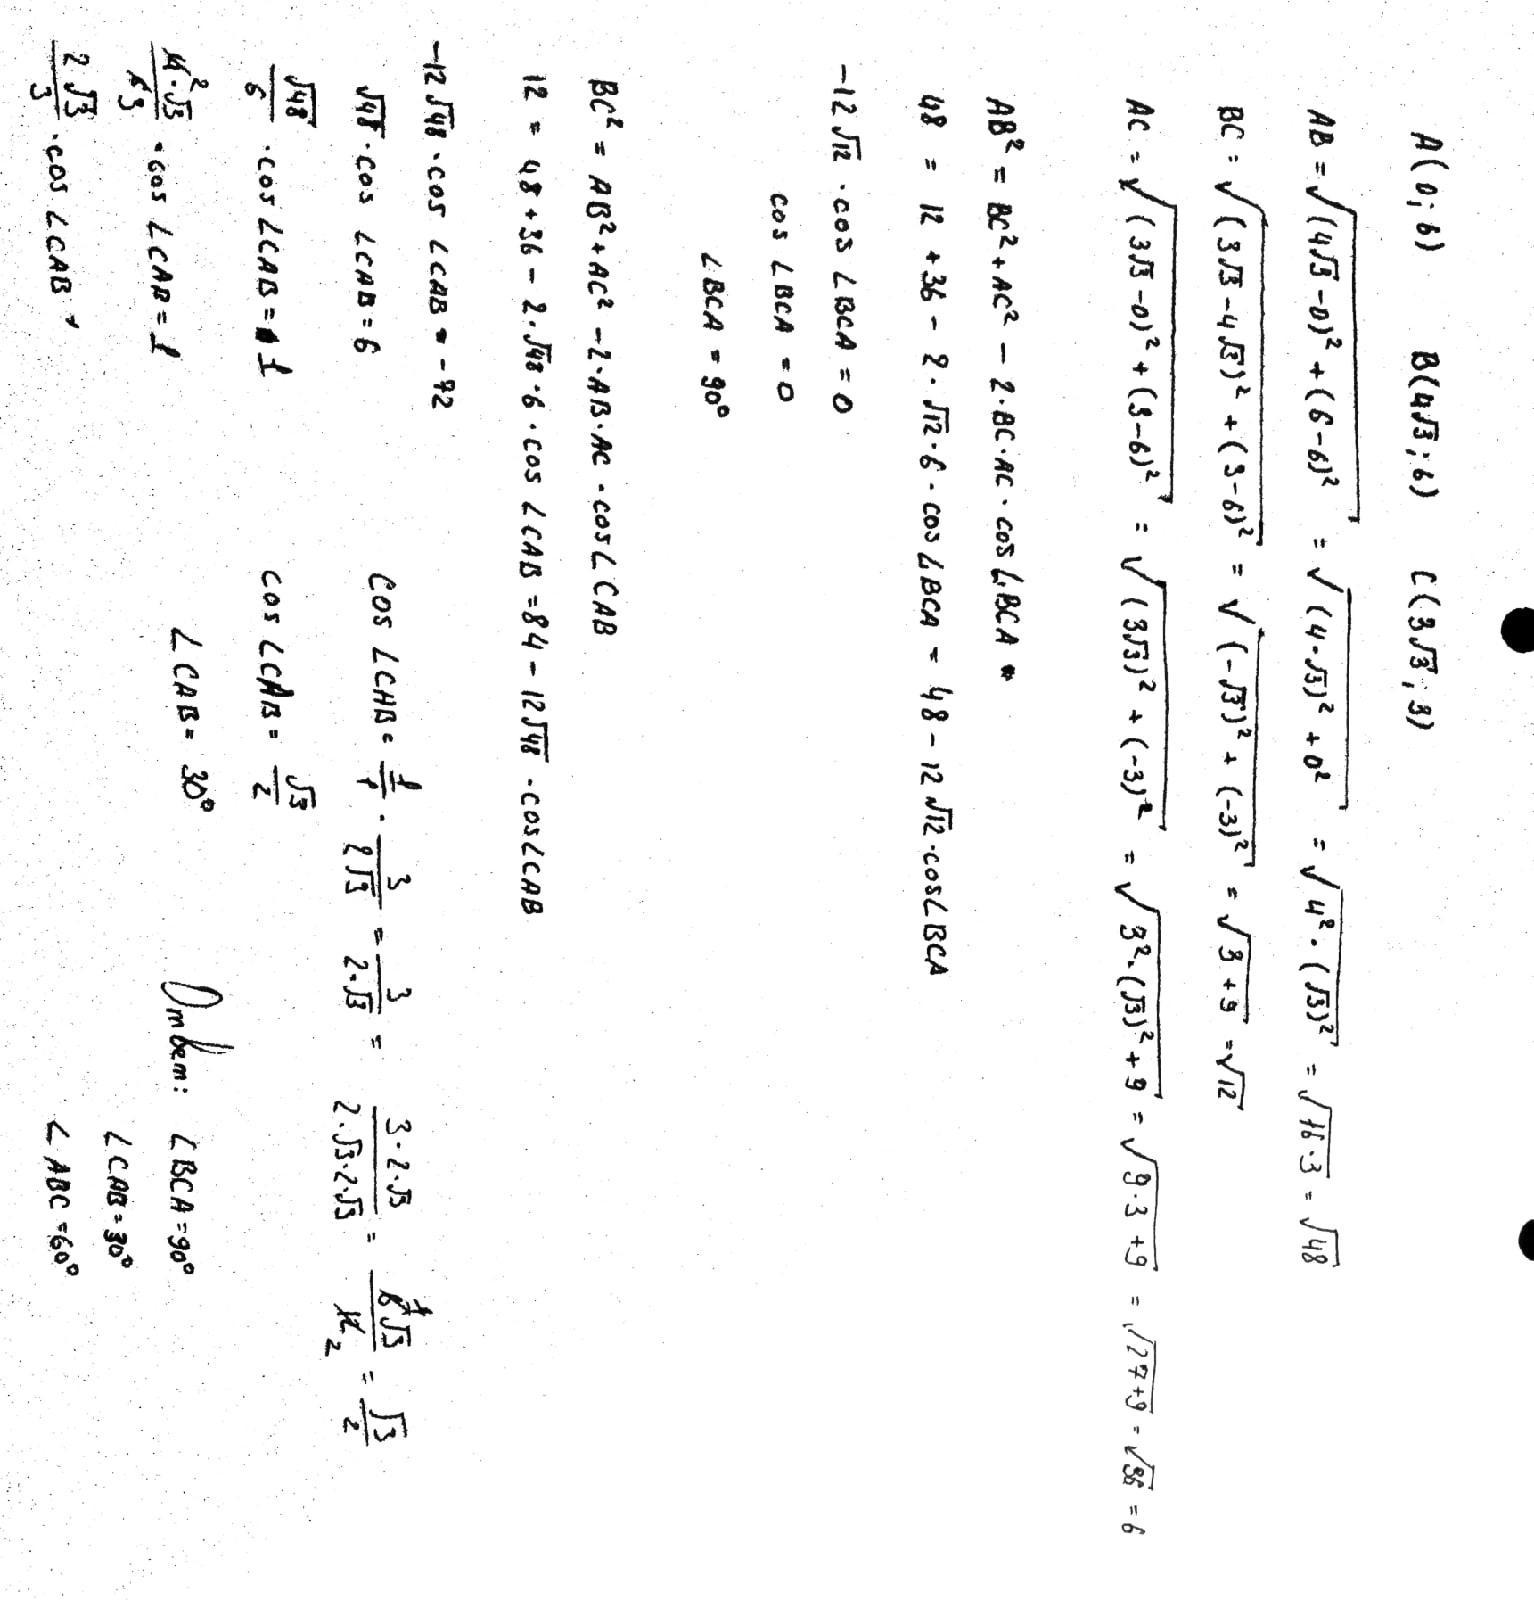 A(0; 6) B(4√3; 6) C(3√3; 3)
AB = √((4√3 - 0)² + (6-6)²) = √((4·√3)² + 0²) = √(4² · (√3)²) = √(16·3) = √48
BC = √((3√3 - 4√3)² + (3-6)²) = √((-√3)² + (-3)²) = √(3+9) = √12
AC = √((3√3 - 0)² + (3-6)²) = √((3√3)² + (-3)²) = √(3²·(√3)² + 9) = √(9·3 + 9) = √(27+9) = √36 = 6
AB² = BC² + AC² - 2·BC·AC·cos∠BCA =
48 = 12 + 36 - 2·√12·6·cos∠BCA = 48 - 12√12·cos∠BCA
-12√12 · cos∠BCA = 0
cos∠BCA = 0
∠BCA = 90°
BC² = AB² + AC² - 2·AB·AC·cos∠CAB
12 = 48 + 36 - 2·√48·6·cos∠CAB = 84 - 12√48·cos∠CAB
-12√48·cos∠CAB = -72
√48·cos∠CAB = 6
√48/6 · cos∠CAB = 1
4²·√3/6 3 · cos∠CAB = 1
2√3/3 · cos∠CAB =
cos∠CAB = 1/1 · 3/2√3 = 3/2·√3 = 3·2·√3/2·√3·2·√3 = 6 1√3/12 2 = √3/2
cos∠CAB = √3/2
∠CAB = 30°
Ответ: ∠BCA = 90°
∠CAB = 30°
∠ABC = 60°